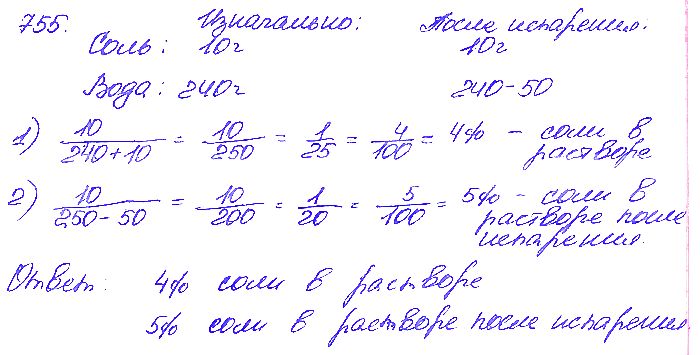 755. Изначально: После испарения:
Соль: 10г 10г
Вода: 240г 240-50
1) 10/(240+10) = 10/250 = 1/25 = 4/100 = 4% - соли в растворе
2) 10/(250-50) = 10/200 = 1/20 = 5/100 = 5% - соли в растворе после испарения.
Ответ: 4% соли в растворе
5% соли в растворе после испарения.